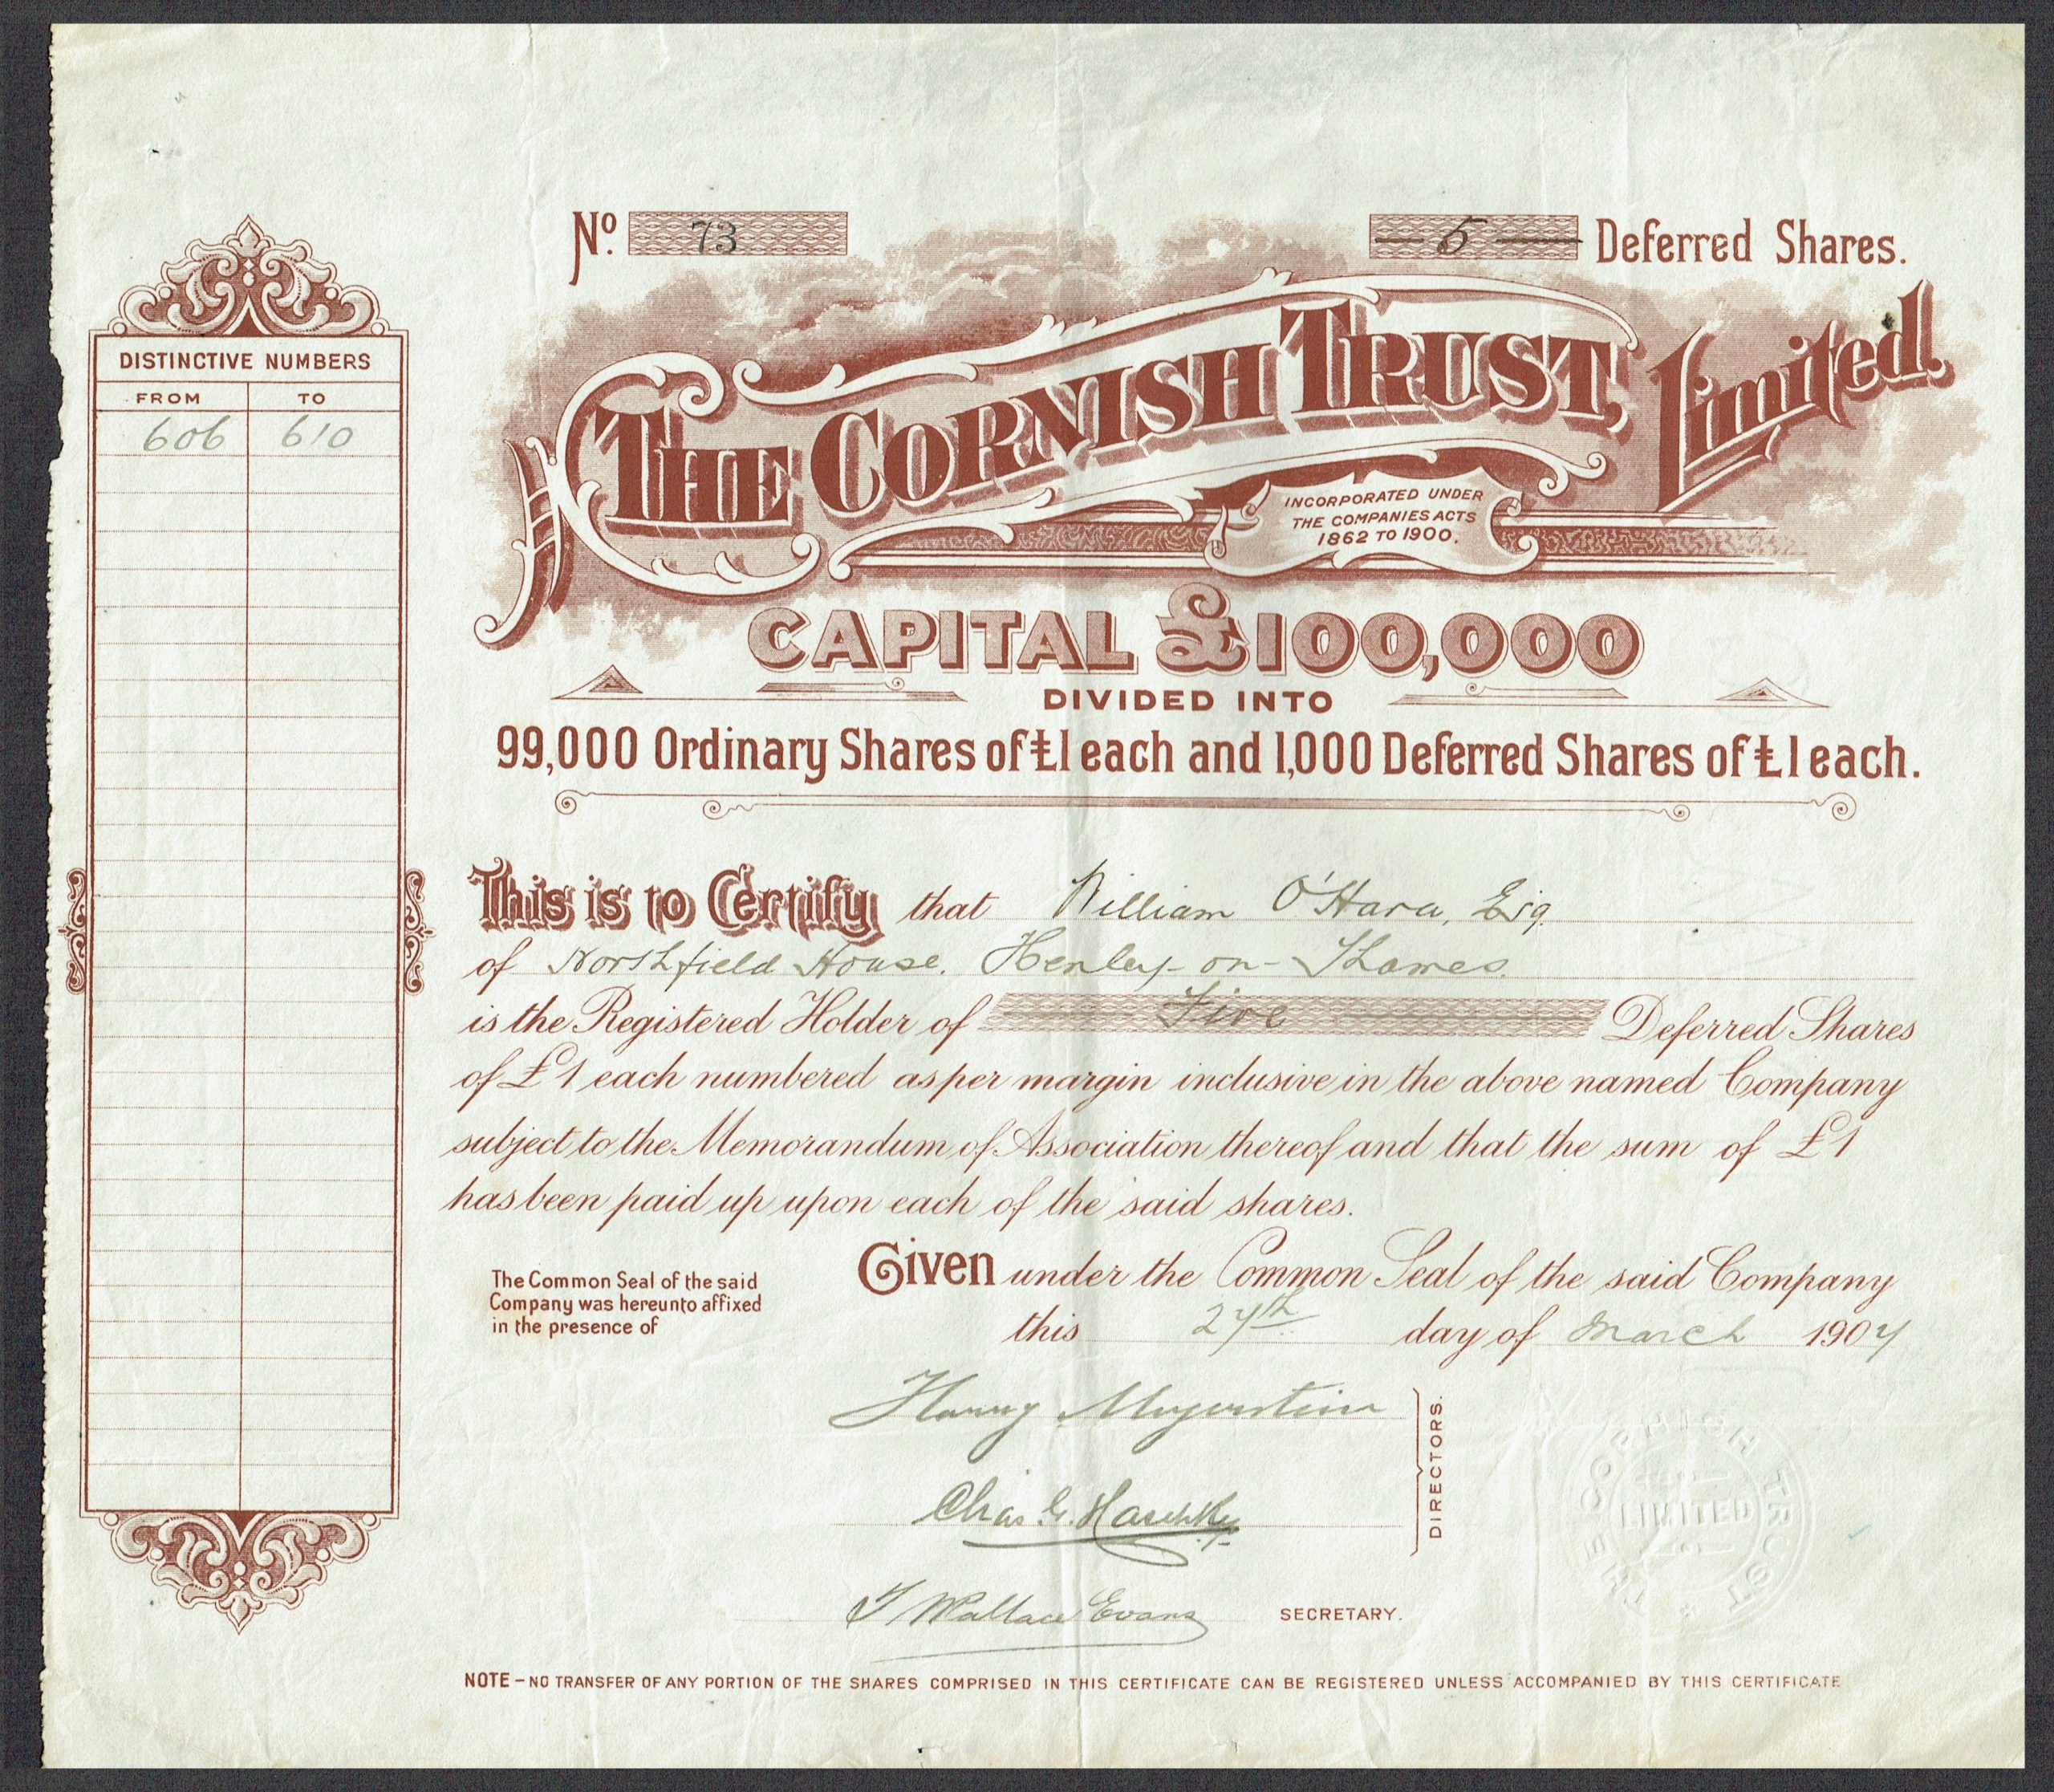 No. 73
5 Deferred Shares.
THE CORNISH TRUST, Limited.
INCORPORATED UNDER
THE COMPANIES ACTS
1862 TO 1900.
CAPITAL £100,000
DIVIDED INTO
99,000 Ordinary Shares of £1 each and 1,000 Deferred Shares of £1 each.
DISTINCTIVE NUMBERS
FROM TO
606 610
This is to Certify that William O'Hara, Esq.
of Northfield House. Henley-on-Thames.
is the Registered Holder of Five Deferred Shares
of £1 each numbered as per margin inclusive in the above named Company
subject to the Memorandum of Association thereof and that the sum of £1
has been paid up upon each of the said shares.
The Common Seal of the said
Company was hereunto affixed
in the presence of
Given under the Common Seal of the said Company
this 24th day of March 1904
Harry
Chas G.
DIRECTORS.
J Wallace Evans SECRETARY.
THE CORNISH TRUST
LIMITED
NOTE – NO TRANSFER OF ANY PORTION OF THE SHARES COMPRISED IN THIS CERTIFICATE CAN BE REGISTERED UNLESS ACCOMPANIED BY THIS CERTIFICATE